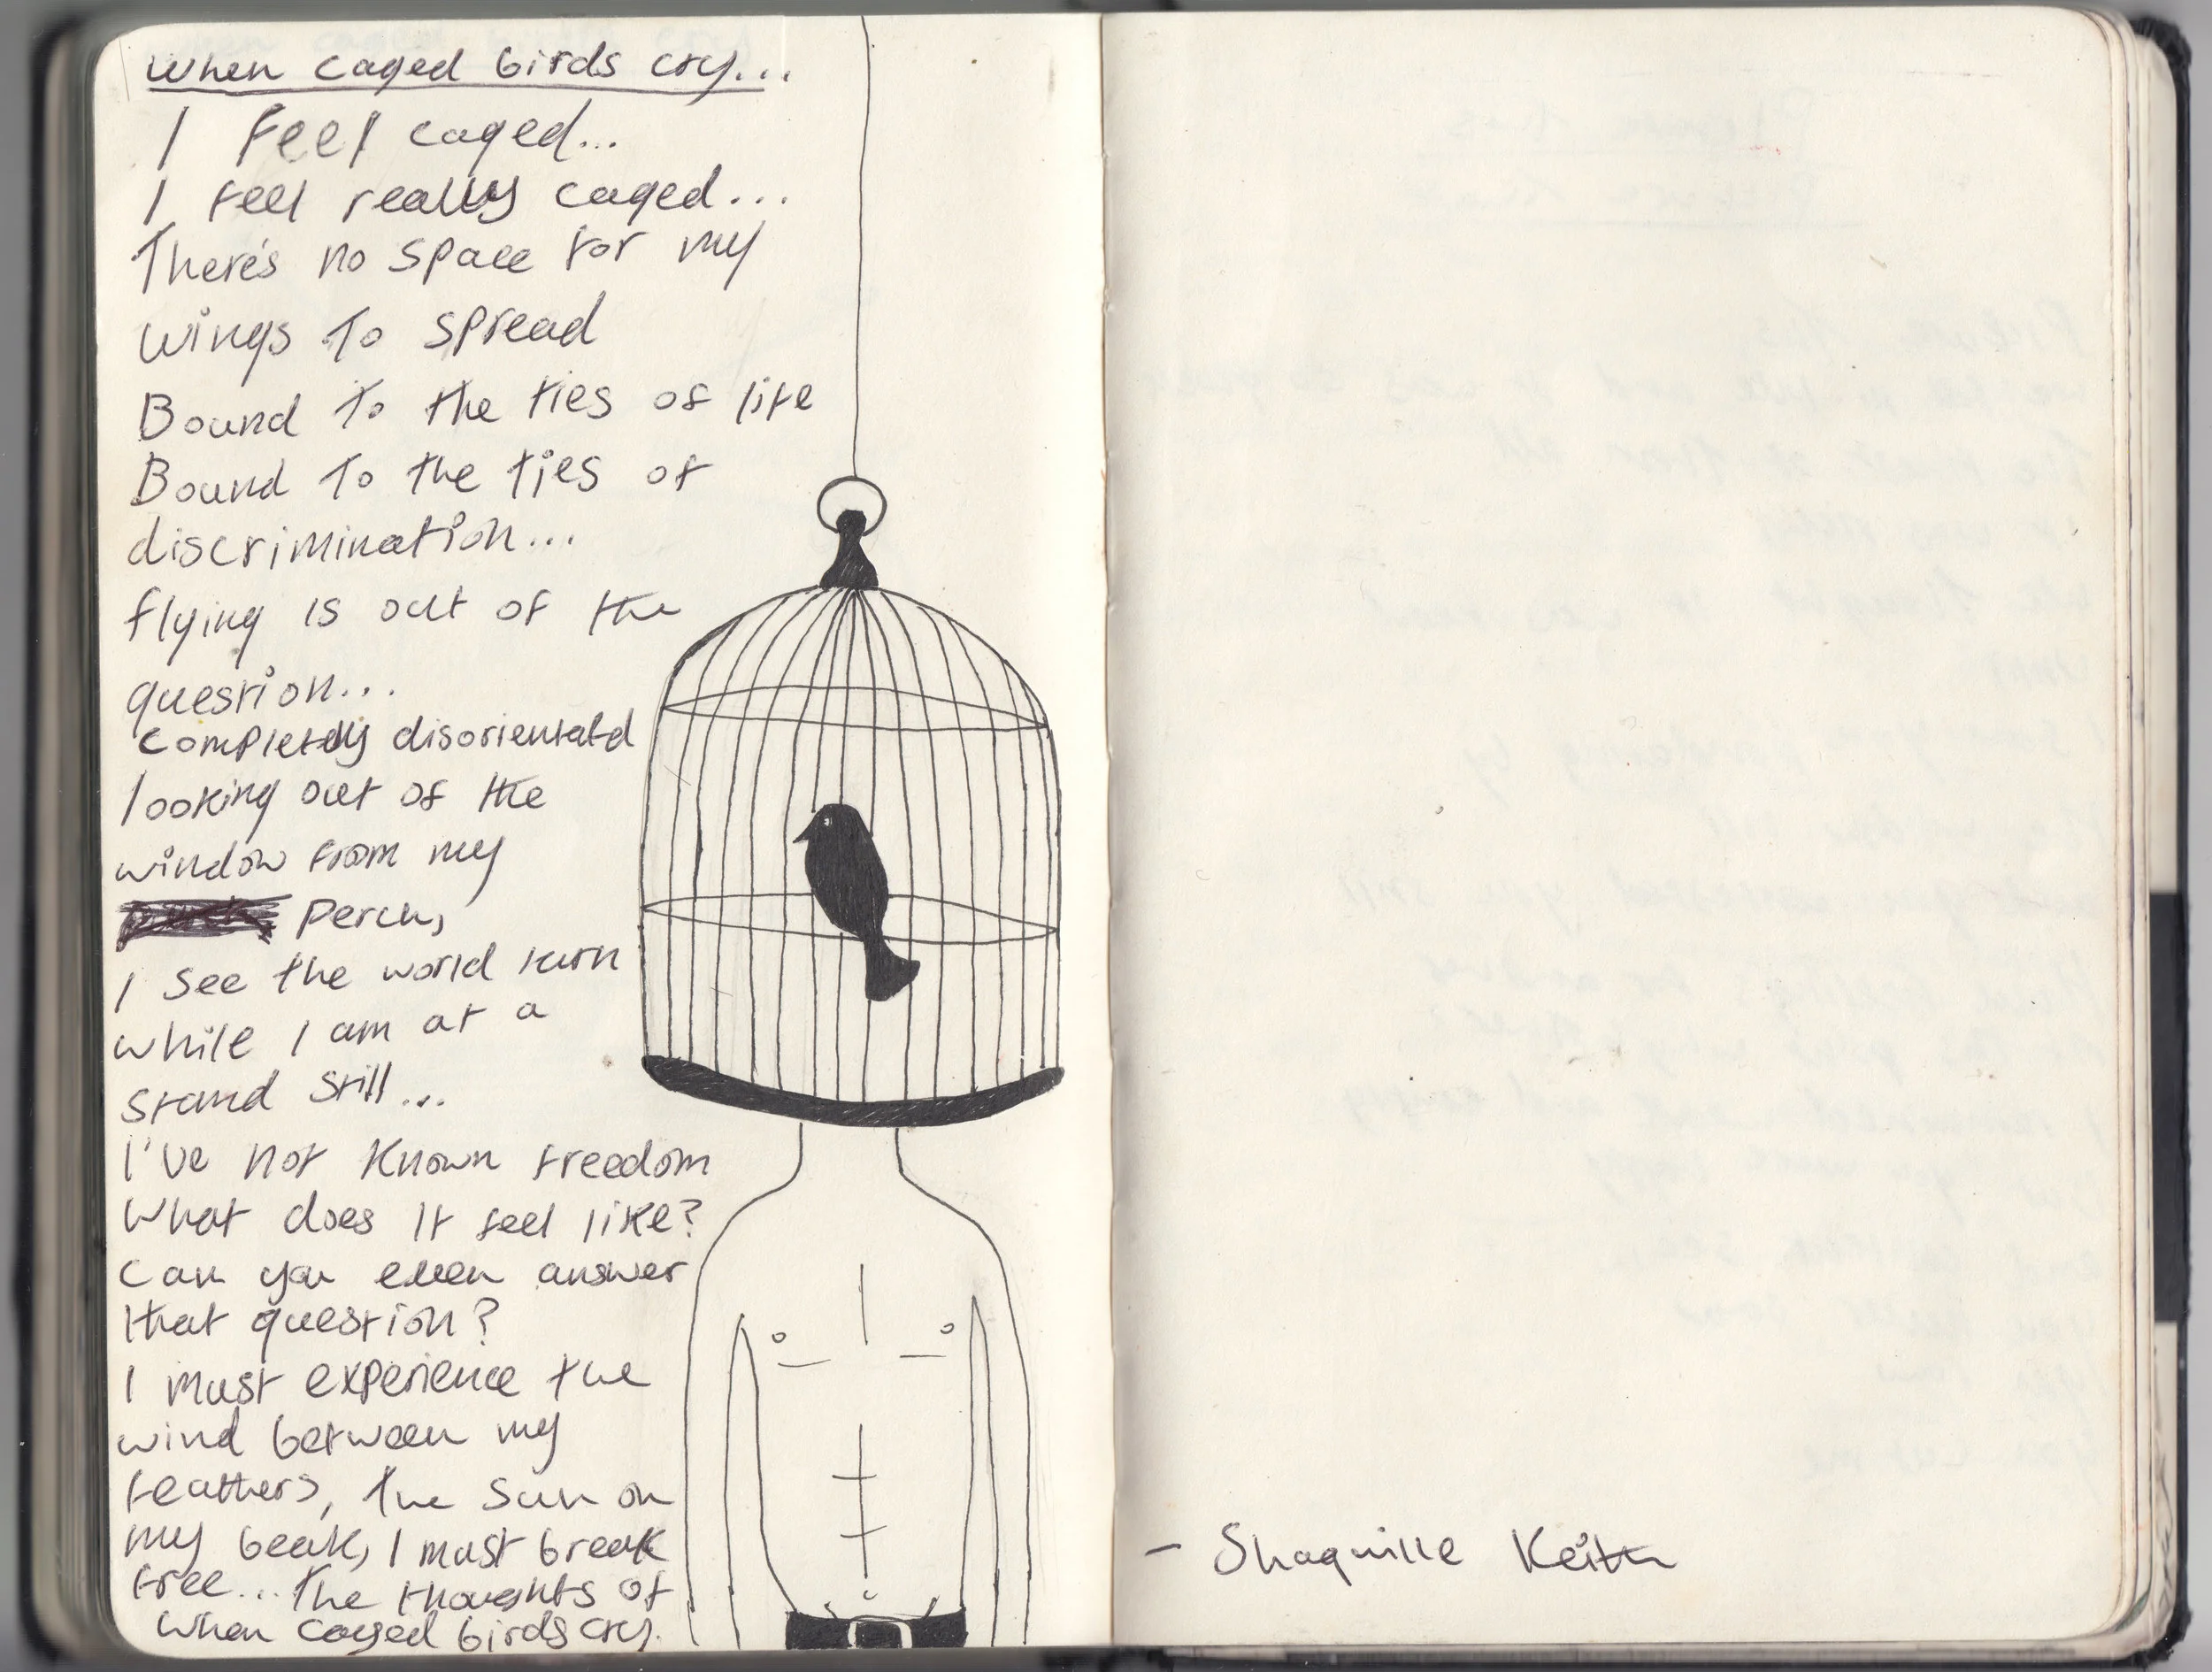 When caged birds cry...
I feel caged...
I feel really caged...
There's no space for my
wings to spread
Bound to the ties of life
Bound to the ties of
discrimination...
flying is out of the
question...
completely disorientatd
looking out of the
window from my
perch,
I see the world turn
while I am at a
stand still...
I've not known freedom
What does it feel like?
can you even answer
that question?
I must experience the
wind between my
feathers, the sun on
my beak, I must break
free... the thoughts of
when caged birds cry.
- Shaquille Keith